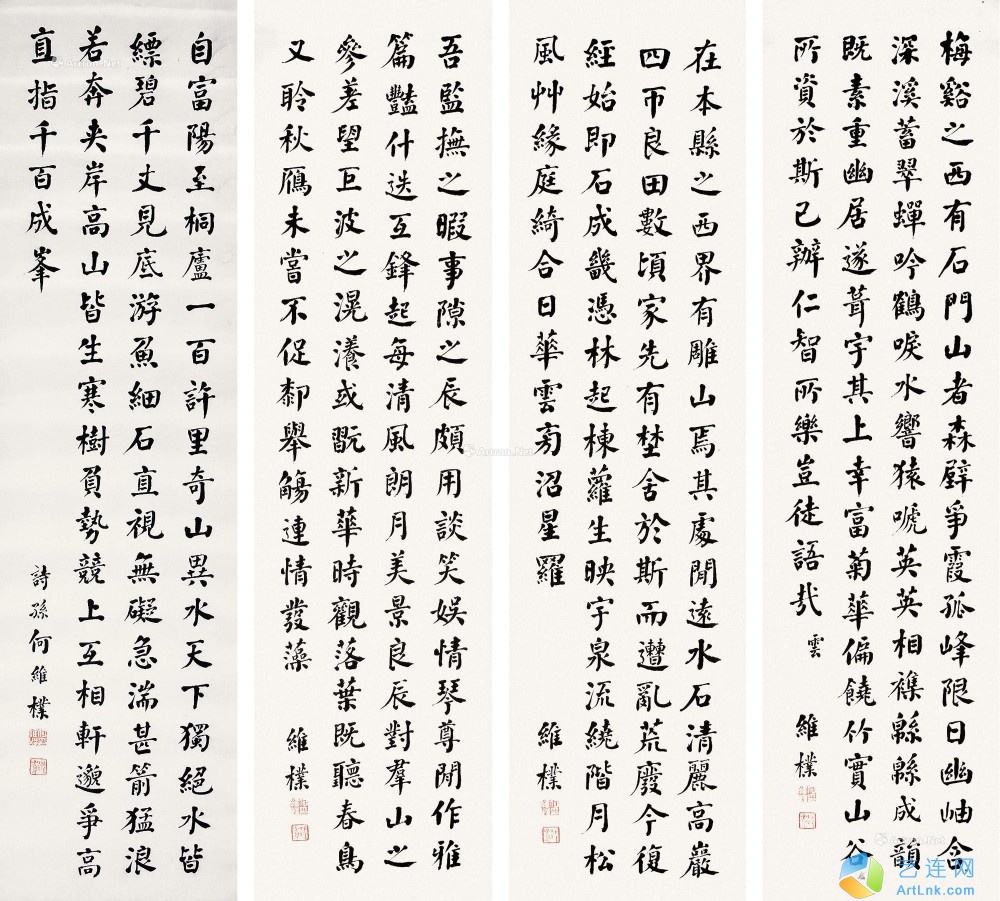 梅谿之西有石門山者森壁爭霞孤峰限日幽岫含
深溪蓄翠蟬吟鶴唳水響猿啼英英相襍緜緜成韻
既素重幽居遂葺宇其上幸富菊華偏饒竹實山谷
所資於斯已辦仁智所樂豈徒語哉 雲
維樸
在本縣之西界有雕山焉其處閒遠水石清麗高巖
四帀良田數頃家先有埜舍於斯而遭亂荒廢今復
經始即石成畿憑林起棟蘿生映宇泉流繞階月松
風艸緣庭綺合日華雲旁沼星羅
維樸
吾監撫之暇事隙之辰頗用談笑娛情琴尊閒作雅
篇豔什迭互鋒起每清風朗月美景良辰對羣山之
參差望巨波之滉瀁或翫新華時觀落葉既聽春鳥
又聆秋鴈未嘗不促郀舉觴連情發藻
維樸
自富陽至桐廬一百許里奇山異水天下獨絕水皆
縹碧千丈見底游魚細石直視無礙急湍甚箭猛浪
若奔夾岸高山皆生寒樹負勢競上互相軒邈爭高
直指千百成峯
詩孫何維樸
Artran.Net
艺连网
ArtLnk.com